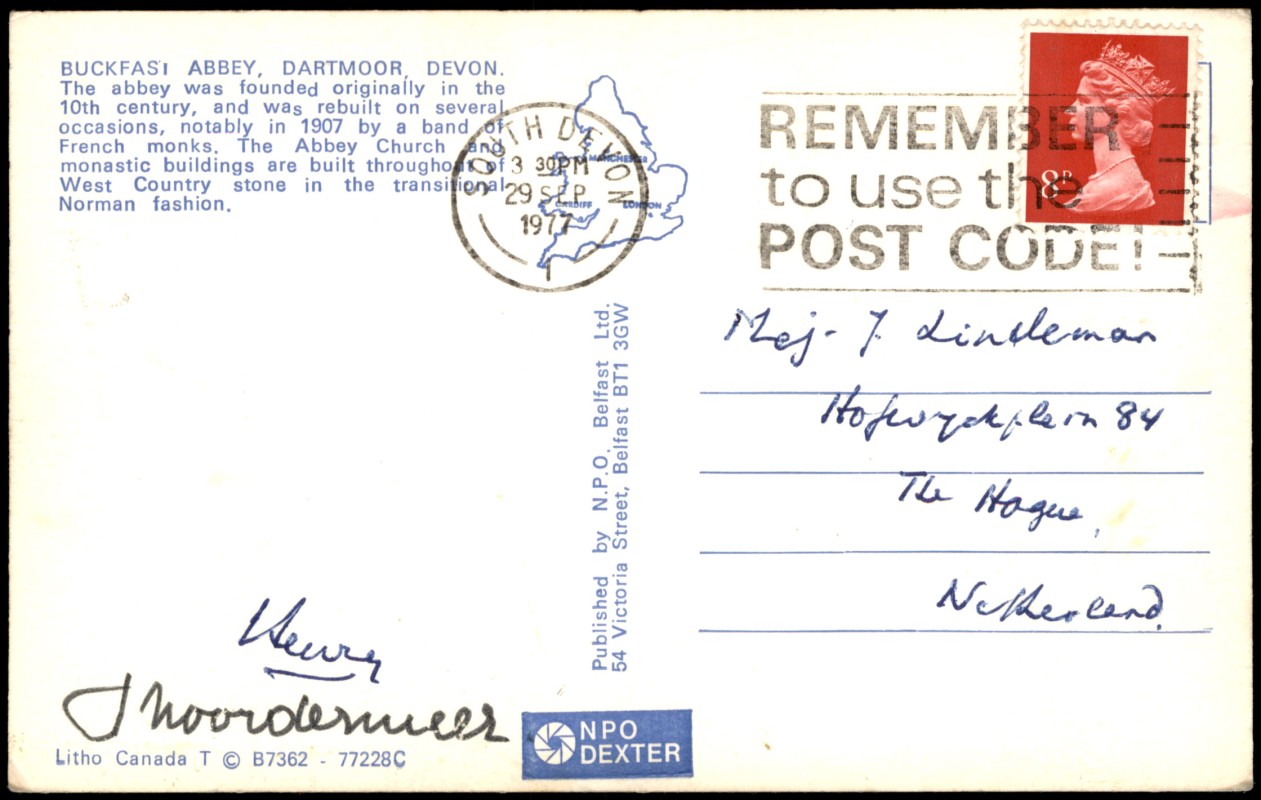 BUCKFAST ABBEY, DARTMOOR, DEVON.
The abbey was founded originally in the
10th century, and was rebuilt on several
occasions, notably in 1907 by a band of
French monks. The Abbey Church and
monastic buildings are built throughout of
West Country stone in the transitional
Norman fashion.
SOUTH DEVON
3 30PM
29 SEP
1977
MANCHESTER
CARDIFF
LONDON
REMEMBER
to use the
POST CODE!
8P
Published by N.P.O. Belfast Ltd.
54 Victoria Street, Belfast BT1 3GW
Mej. J. Lindeman
Hofwyckplein 84
The Hague,
Netherland.
Henry
J Noordermeer
Litho Canada T © B7362 - 77228C
NPO
DEXTER